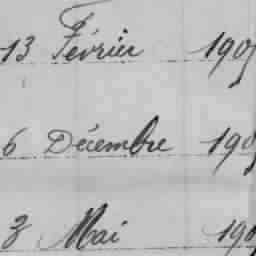 13 Février 190
6 Décembre 190
3 Mai 190